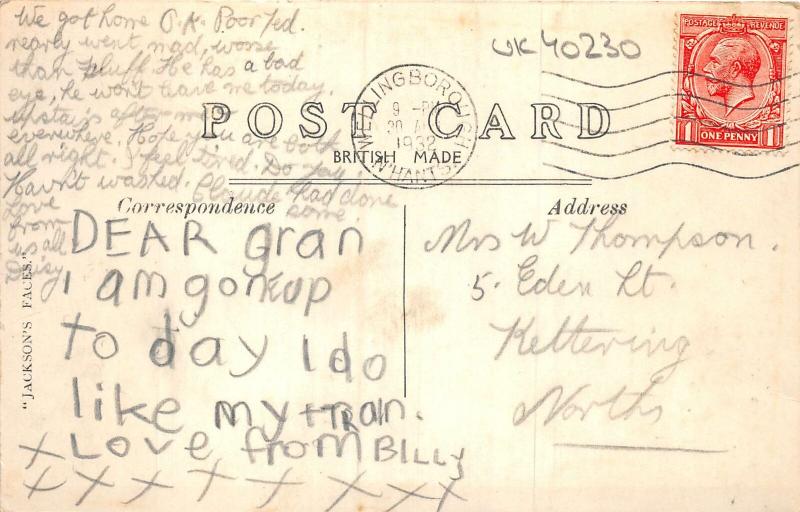 We got home O.K. Poor Ted.
nearly went mad, worse
than Fluff. He has a bad
eye, he won't leave me today.
upstairs after me
everywhere. Hope you are both
all right. I feel tired. Do you
Havn't washed. Claude had done
some.
Love
from
us all
Daisy
UK 40230
POSTAGE REVENUE
1 ONE PENNY 1
WELLINGBOROUGH
9 - PM
30
1932
N'HANTS
POST CARD
BRITISH MADE
Correspondence
Address
"JACKSON'S FACES."
DEAR Gran
i am gone up
to day I do
like my TRain.
X Love from BILLY
X X X X X X X X
Mrs W Thompson.
5. Eden St.
Kettering
Norths